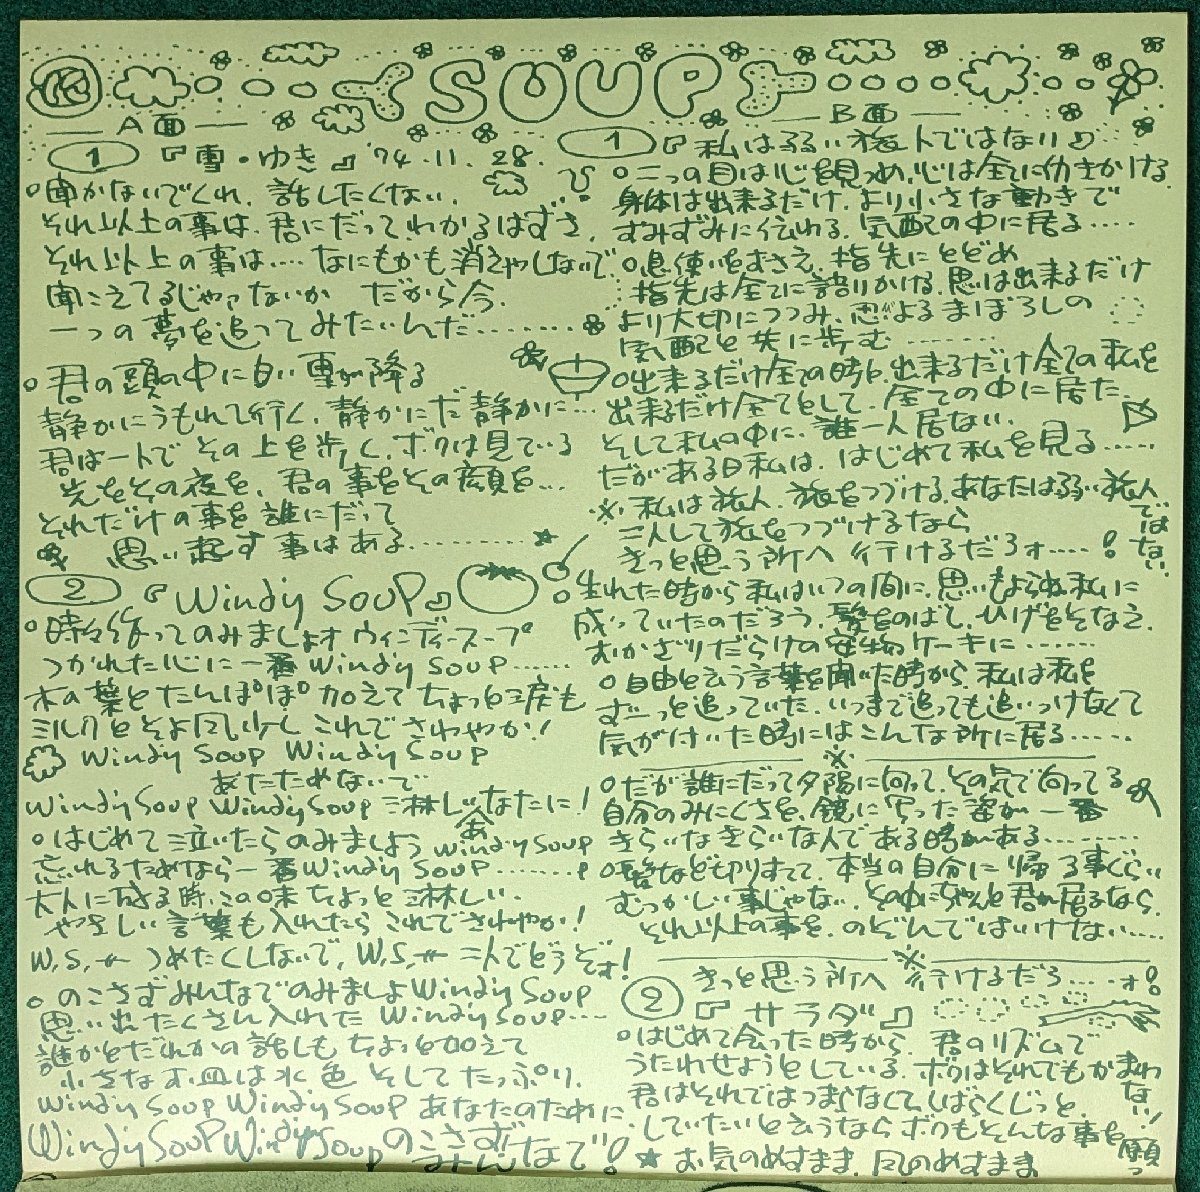 SOUP
A面
① 『雪・ゆき』 '74.11.28.
○聞かないでくれ、話したくない、
それ以上の事は、君にだってわかるはずさ、
それ以上の事は‥‥なにもかも消えやしないで、
聞こえてるじゃァないか だから今、
一つの夢を追ってみたいんだ‥‥‥‥
○君の頭の中に白い雪が降る
静かにうもれて行く、静かにだ静かに‥‥
君は一人でその上を歩く、ボクは見ている
先をその夜を、君の事をその顔を‥‥
それだけの事を誰にだって
思い起す事はある‥‥‥‥
② 『Windy SOUP』
○時々作ってのみましょォウィンディースープ
つかれた心に一番 Windy Soup‥‥‥
木の葉とたんぽぽ加えてちょっと涙も
ミルクとそよ風少し これでさわやか!
Windy Soup Windy Soup
あたためないで
Windy Soup Windy Soup 淋しいあなたに!
○はじめて泣いたらのみましょう Windy Soup
忘れるためなら一番 Windy Soup‥‥‥‥
大人に成る時、この味ちょっと淋しい
やさしい言葉も入れたらこれでさわやか!
W, S, 〃 つめたくしないで, W, S, 〃 二人でどうぞォ!
○のこさずみんなでのみましょ Windy Soup
思い出たくさん入れた Windy Soup‥‥
誰かとだれかの話しもちょっと加えて
小さなお皿は水色そしてたっぷり、
Windy Soup Windy Soup あなたのために
Windy Soup Windy Soup のこさずみんなで!
B面
① 『私は弱い旅人ではない』
○二つの目は心を見つめ、心は全てに働きかける
身体は出来るだけ、より小さな動きで
すみずみに伝わる、気配の中に居る‥‥
○息使いをおさえ、指先にとどめ
指先は全てに語りかける、思は出来るだけ
より大切につつみ、忍びよるまぼろしの
気配と共に歩む‥‥‥‥
○出来るだけ全ての時に出来るだけ全ての私を
出来るだけ全てとして、全ての中に居た、
そして私の中に、誰一人居ない、
だがある日私は、はじめて私を見る‥‥
※私は旅人、旅をつづける、あなたは弱い旅人ではない、
二人して旅をつづけるなら
きっと思う所へ行けるだろォ‥‥!
○生れた時から私はいつの間に、思いもよらぬ私に
成っていたのだろう、髪をのばし、ひげをそなえ、
おかざりだらけの ケーキに‥‥‥
○自由と云う言葉を聞いた時から、私は私を
ずーっと追っていた、いつまで追っても追いつけなくて
気が付いた時にはこんな所に居る‥‥
※
○だが誰にだって夕陽に向って、その気で向ってる
自分のみにくさを、鏡に写った姿が一番
きらいなきらいな人である時がある‥‥‥‥
○髪など切りすてて、本当の自分に帰る事ぐらい
むつかしい事じゃない、その中にちゃんと君が居るなら、
それ以上の事を、のぞんではいけない‥‥
※
きっと思う所へ行けるだろ‥‥ォ!
② 『サラダ』
○はじめて会った時から、君のリズムで
うたわせようとしている、ボクはそれでもかまわない!
君はそれではつまらなくて、しばらくじっと、
していたいと云うならボクもそんな事を願っ
★お気のめすまま、風のめすまま